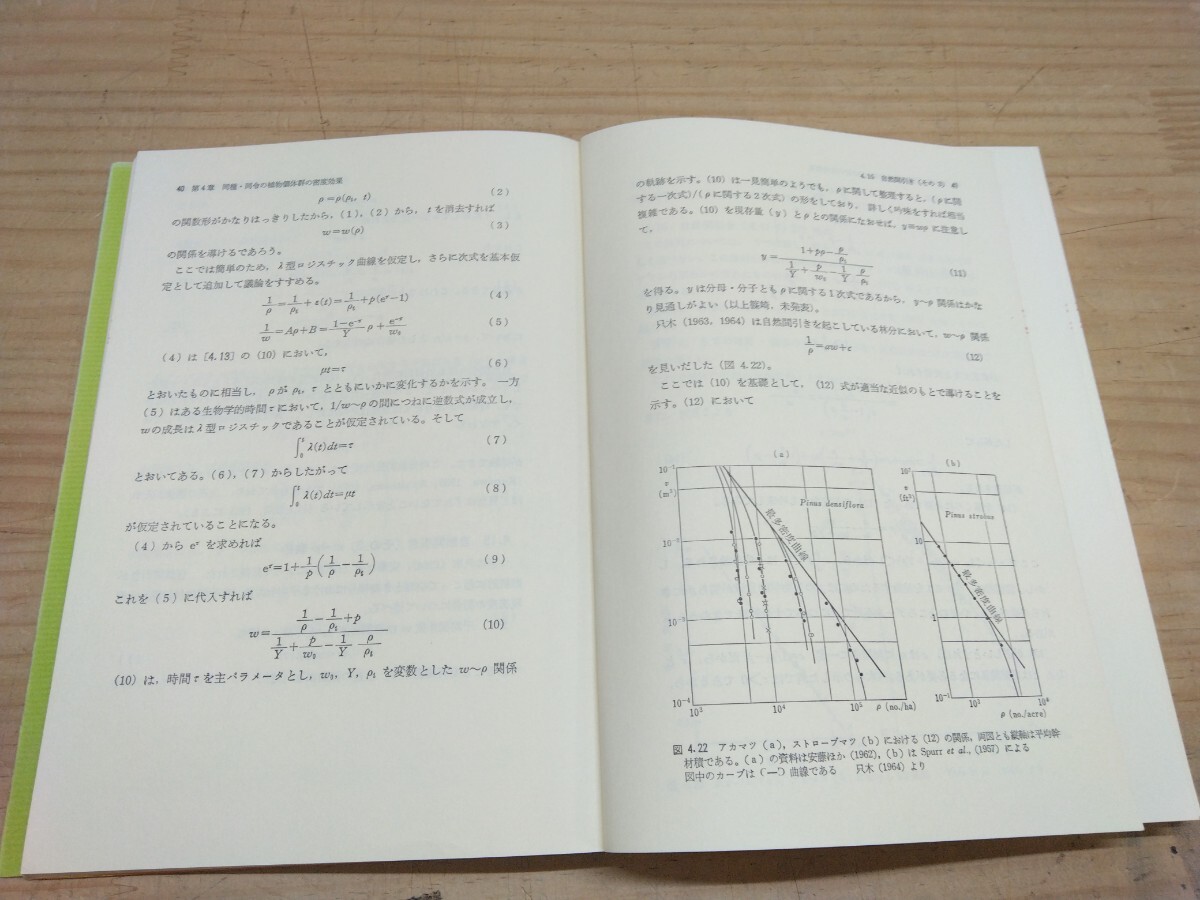 40 第4章 同種・同令の植物個体群の密度効果
ρ=ρ(ρi, t) (2)
の関数形がかなりはっきりしたから,(1),(2)から, tを消去すれば
w=w(ρ) (3)
の関係を導けるであろう。
ここでは簡単のため, λ型ロジスチック曲線を仮定し,さらに次式を基本仮
定として追加して議論をすすめる。
1/ρ=1/ρi+ε(t)=1/ρi+p(e^τ−1) (4)
1/w=Aρ+B=(1−e^−τ)/Y ρ+e^−τ/w0 (5)
(4)は[4.13]の(10)において,
μt=τ (6)
とおいたものに相当し, ρが ρi, τ とともにいかに変化するかを示す。 一方
(5)はある生物学的時間τにおいて,1/w〜ρの間につねに逆数式が成立し,
wの成長はλ型ロジスチックであることが仮定されている。そして
∫0^t λ(t)dt=τ (7)
とおいてある。(6),(7)からしたがって
∫0^t λ(t)dt=μt (8)
が仮定されていることになる。
(4)から e^τ を求めれば
e^τ=1+1/p(1/ρ−1/ρi) (9)
これを(5)に代入すれば
w=(1/ρ−1/ρi+p)/(1/Y+p/w0−1/Y ρ/ρi) (10)
(10)は,時間τを主パラメータとし, w0, Y, ρi を変数とした w〜ρ 関係
自然間引き(その
の軌跡を示す。(10)は一見簡単のようでも, ρに関して整理すると,(ρに関
する一次式)/(ρに関する2次式)の形をしており, 詳しく吟味をすれば相当
複雑である。(10)を現存量(y)とρとの関係になおせば, y=wρ に注意し
て,
y=(1+pρ−ρ/ρi)/(1/Y+p/w0−1/Y ρ/ρi) (11)
を得る。yは分母・分子ともρに関する1次式であるから, y〜ρ 関係はかな
り見通しがよい(以上篠崎,未発表)。
只木(1963, 1964)は自然間引きを起こしている林分において, w〜ρ 関係
1/ρ=aw+c (12)
を見いだした(図 4.22)。
ここでは(10)を基礎として,(12)式が適当な近似のもとで導けることを
示す。(12)において
(a)
10⁻¹
v
(m³)
Pinus densiflora
最多密度曲線
10⁻²
10⁻³
10⁻⁴
10³
10⁴
10⁵
ρ (no./ha)
(b)
10²
v
(ft³)
Pinus strobus
10
最多密度曲線
1
10⁻¹
10³
10⁴
ρ (no./acre)
図 4.22 アカマツ(a),ストローブマツ(b)における(12)の関係,両図とも縦軸は平均幹
材積である。(a)の資料は安藤ほか(1962),(b)は Spurr et al., (1957) による
図中のカーブは(—)曲線である 只木(1964)より